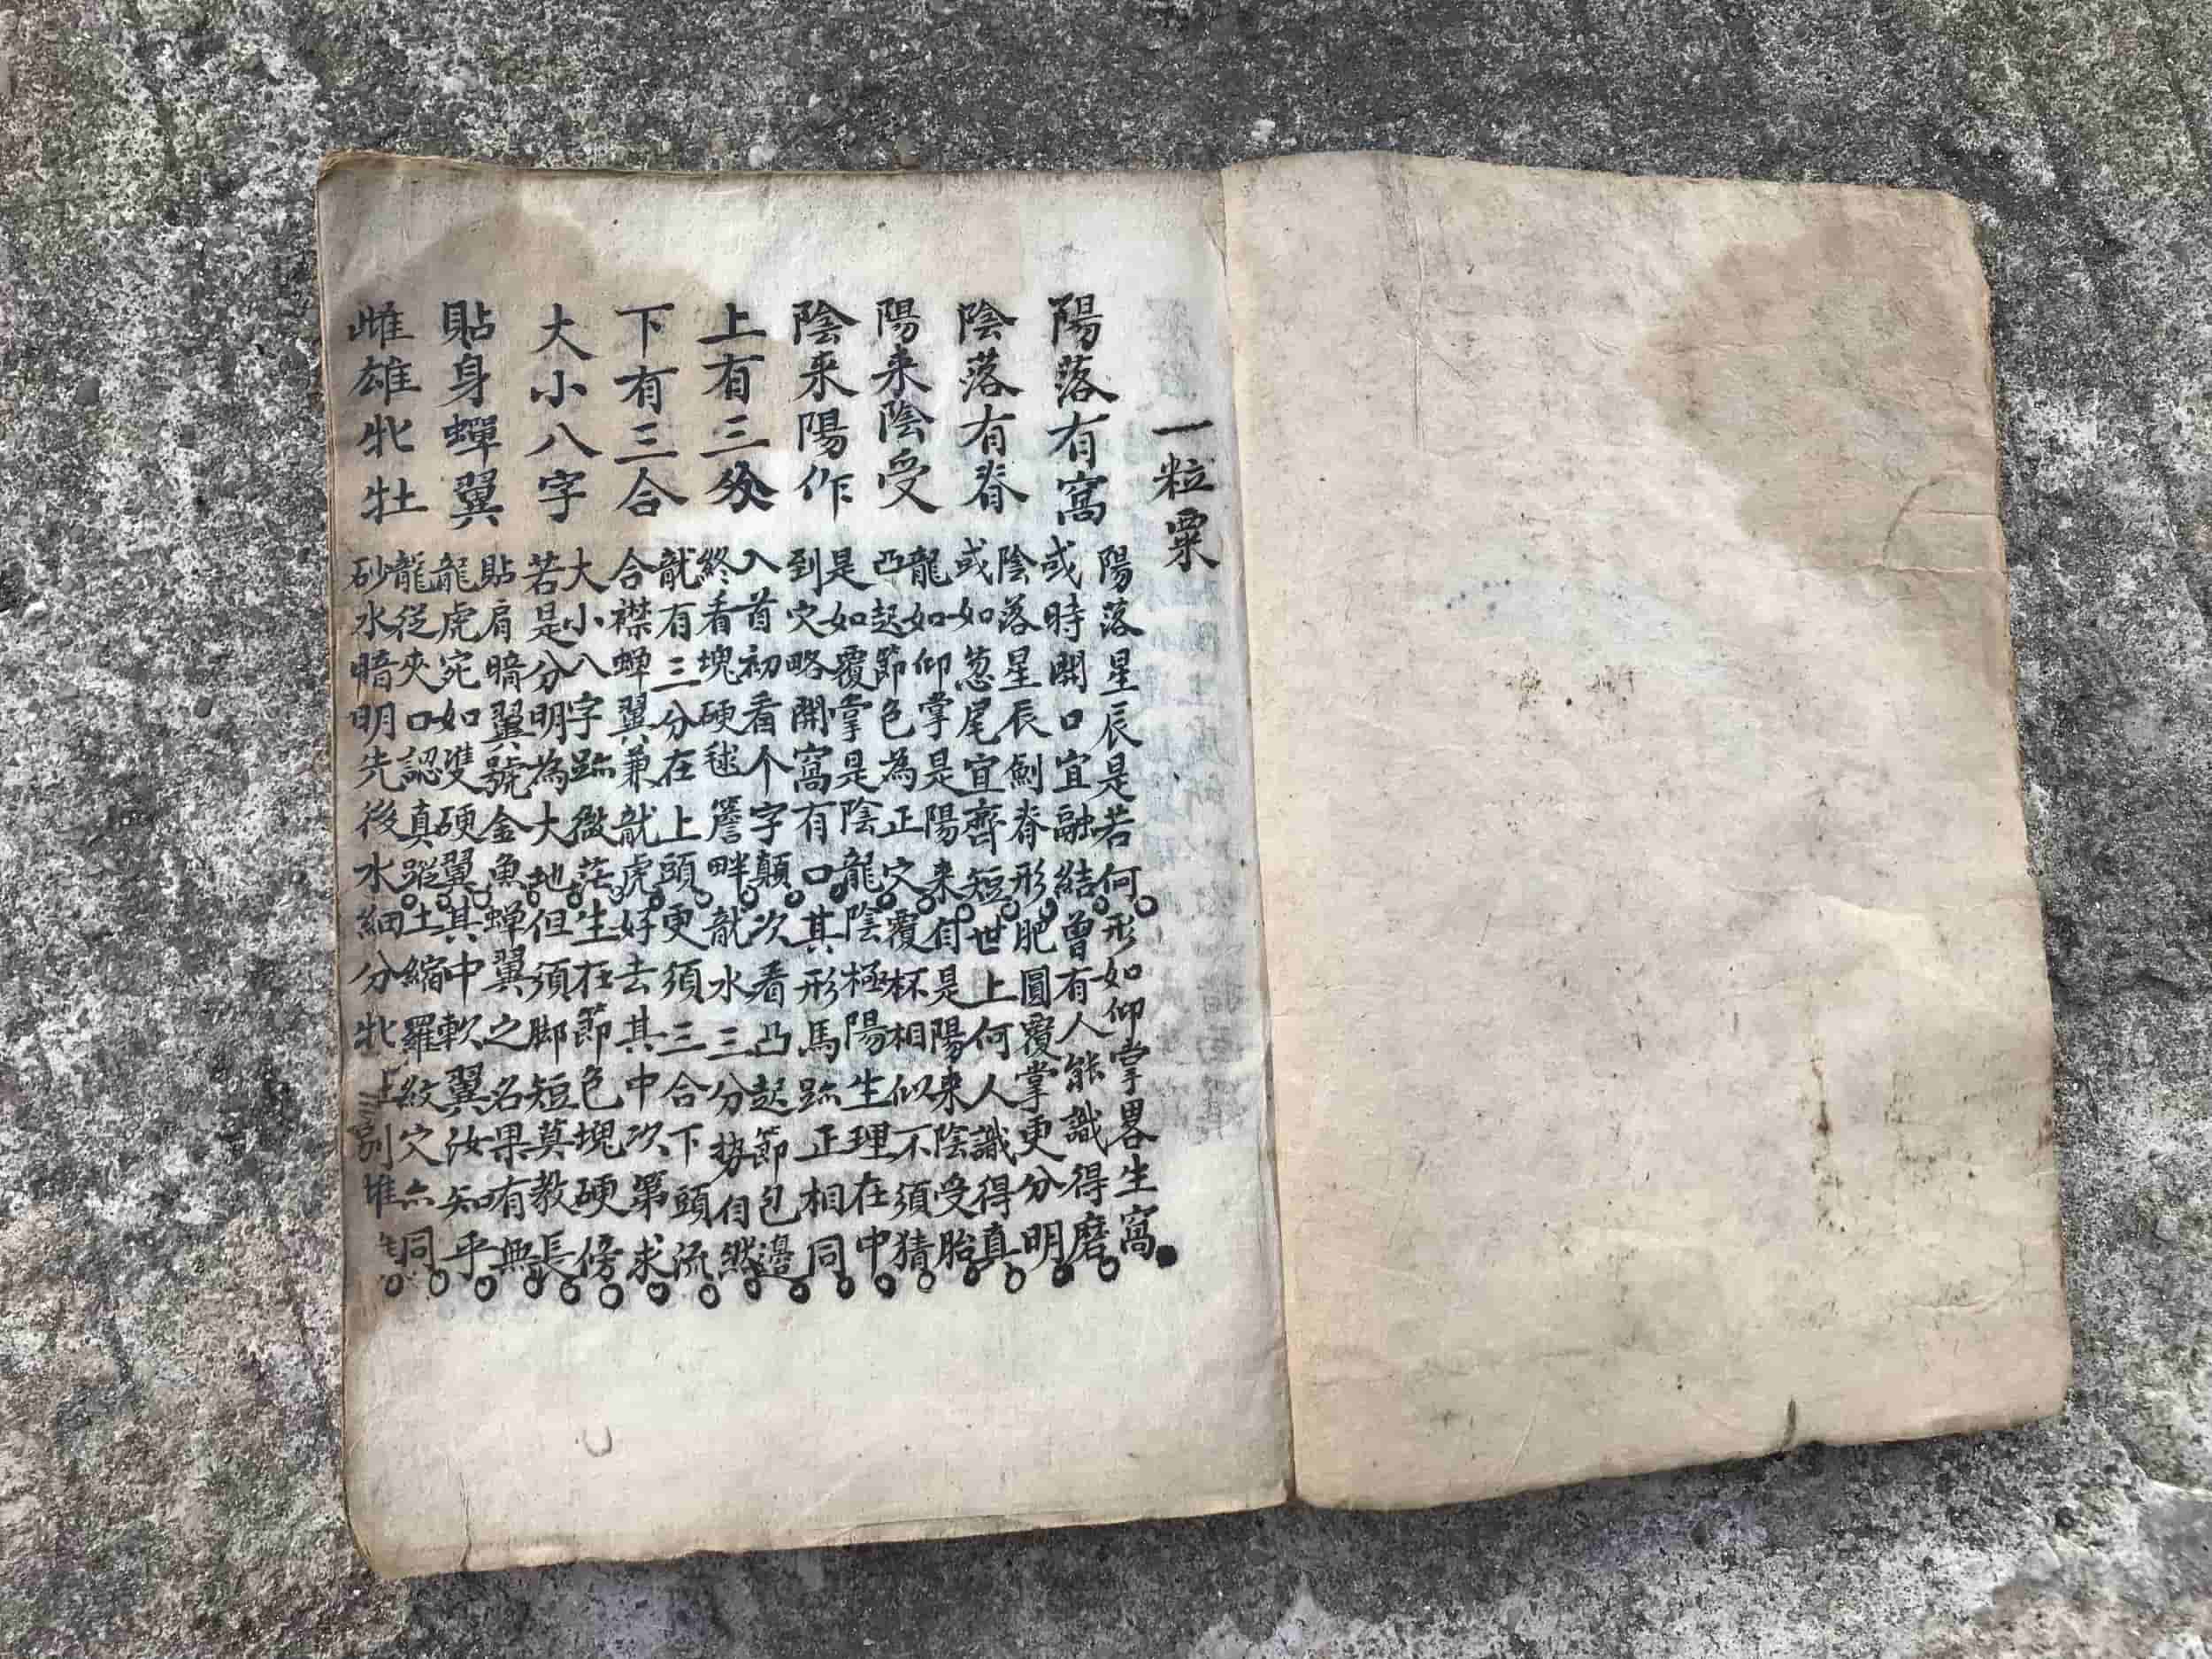 一粒粟
陽落有窩
陽落星辰是若何形如仰掌畧生窩
或時開口宜融結曾有人能識得磨
陰落有脊
陰落星辰劍脊形肥圓覆掌更分明
或如葱尾宜齊短世上何人識得真
陽来陰受
龍如仰掌是陽来自是陽来陰受胎
凸起節色為正穴覆杯相似不須猜
陰来陽作
是如覆掌是陰龍陰極陽生理在中
到穴略開窩有口其形馬跡正相同
上有三分
入首初看个字顛次看凸起節包邊
終看塊硬毬簷畔龍水三分勢自然
下有三合
龍有三分在上頭更須三合下頭流
合襟蟬翼兼龍虎好去其中次第求
大小八字
大小八字跡微茫生在節色塊硬傍
若是分明為大地但須脚短莫教長
貼身蟬翼
貼肩暗翼號金魚蟬翼之名果有無
龍虎宛如雙硬翼其中軟翼汝知乎
雌雄牝牡
龍從夾口認真蹤土縮羅紋穴亦同
砂水暗明先後水細分牝別